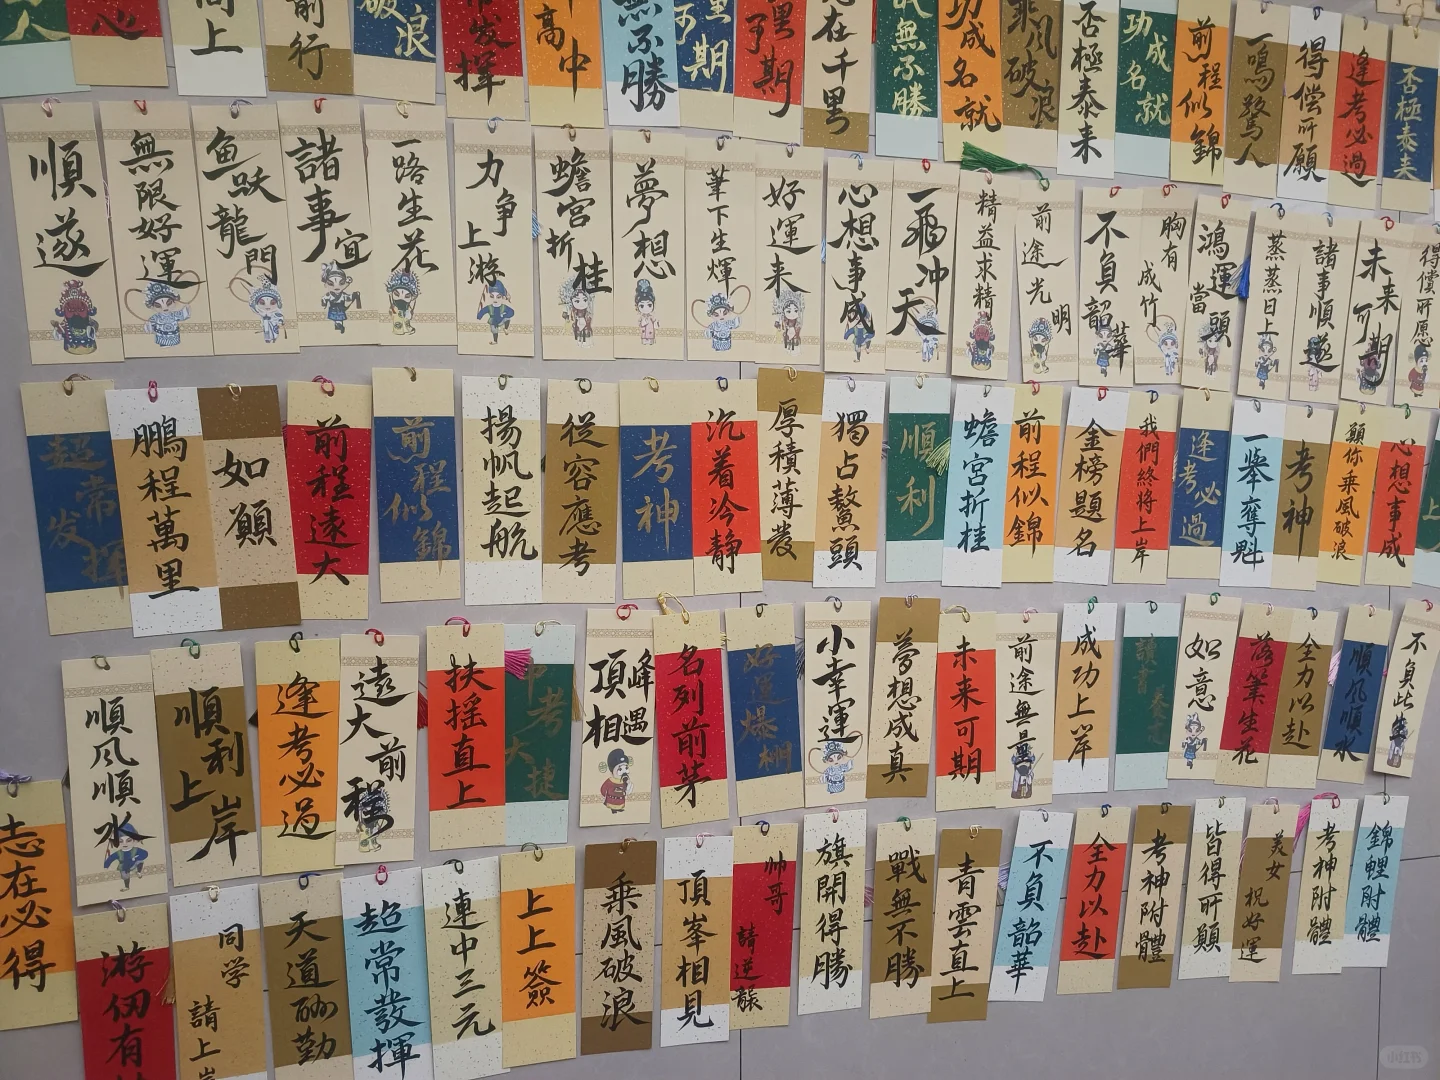 心
上
前行
破浪
常发挥
高中
無不勝
可期
可期
在千里
無不勝
功成名就
乘风破浪
否極泰来
功成名就
前程似錦
一鳴驚人
得偿所願
逢考必過
否極泰来
順遂
無限好運
鱼跃龍門
諸事宜
一路生花
力争上游
蟾宮折桂
夢想
筆下生輝
好運来
心想事成
一飛冲天
精益求精
前途光明
不負韶華
胸有成竹
鴻運當頭
蒸蒸日上
諸事順遂
未来可期
得償所愿
超常发挥
鵬程萬里
如願
前程遠大
前程似錦
揚帆起航
從容應考
考神
沉着冷静
厚積薄發
獨占鰲頭
順利
蟾宮折桂
前程似錦
金榜題名
我們終將上岸
逢考必過
一舉奪魁
考神
願你乘風破浪
心想事成
上
順风順水
順利上岸
逢考必過
遠大前程
扶摇直上
中考大捷
頂峰相遇
名列前茅
好運爆棚
小幸運
夢想成真
未来可期
前途無量
成功上岸
如意
落筆生花
全力以赴
順风順水
不負此生
志在必得
游刃有
同学請上岸
天道酬勤
超常發揮
連中三元
上上簽
乘風破浪
頂峯相見
帅哥請逆襲
旗開得勝
戰無不勝
青雲直上
不負韶華
全力以赴
考神附體
皆得所願
美女祝好運
考神附體
錦鯉附體
小红书